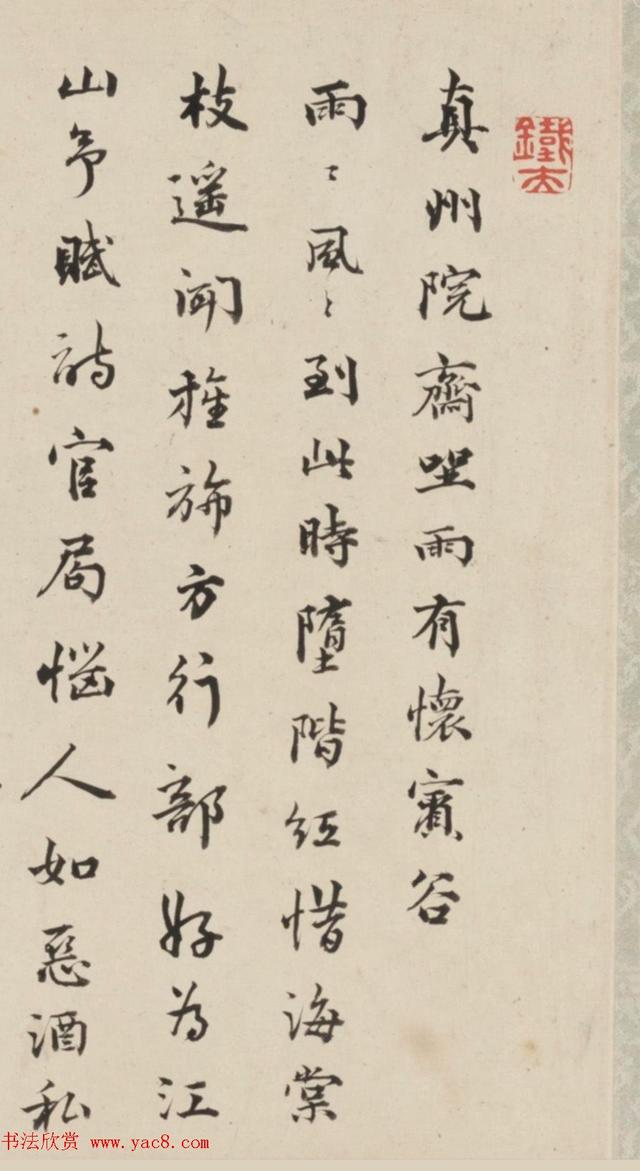 真州院齋坐雨有懷賓谷
雨〻風〻到此時墮階紅惜海棠
枝遥聞旌斾方行部好為江
山予賦詩官局惱人如惡酒私
書法欣赏 www.yac8.com